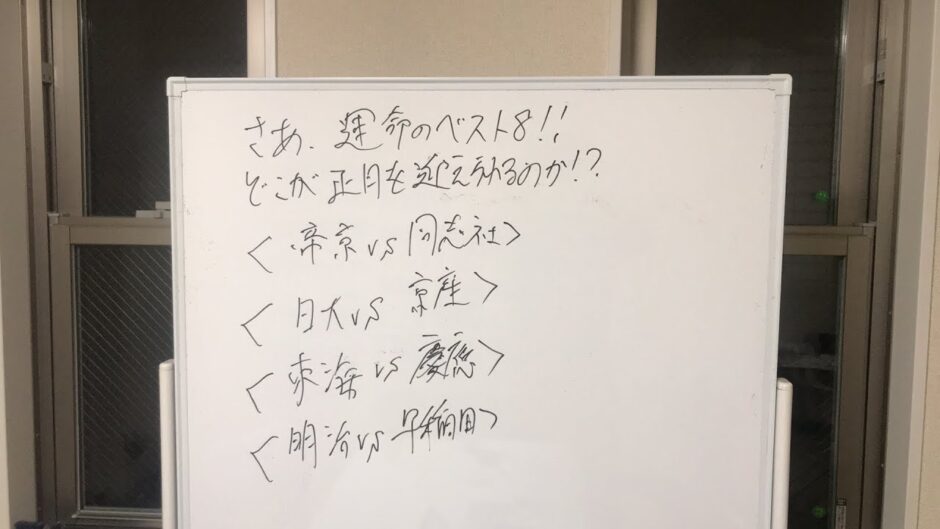 さあ、運命のベスト8!!
どこが正月を迎えられるのか!?
<帝京vs同志社>
<日大vs京産>
<東海vs慶應>
<明治vs早稲田>